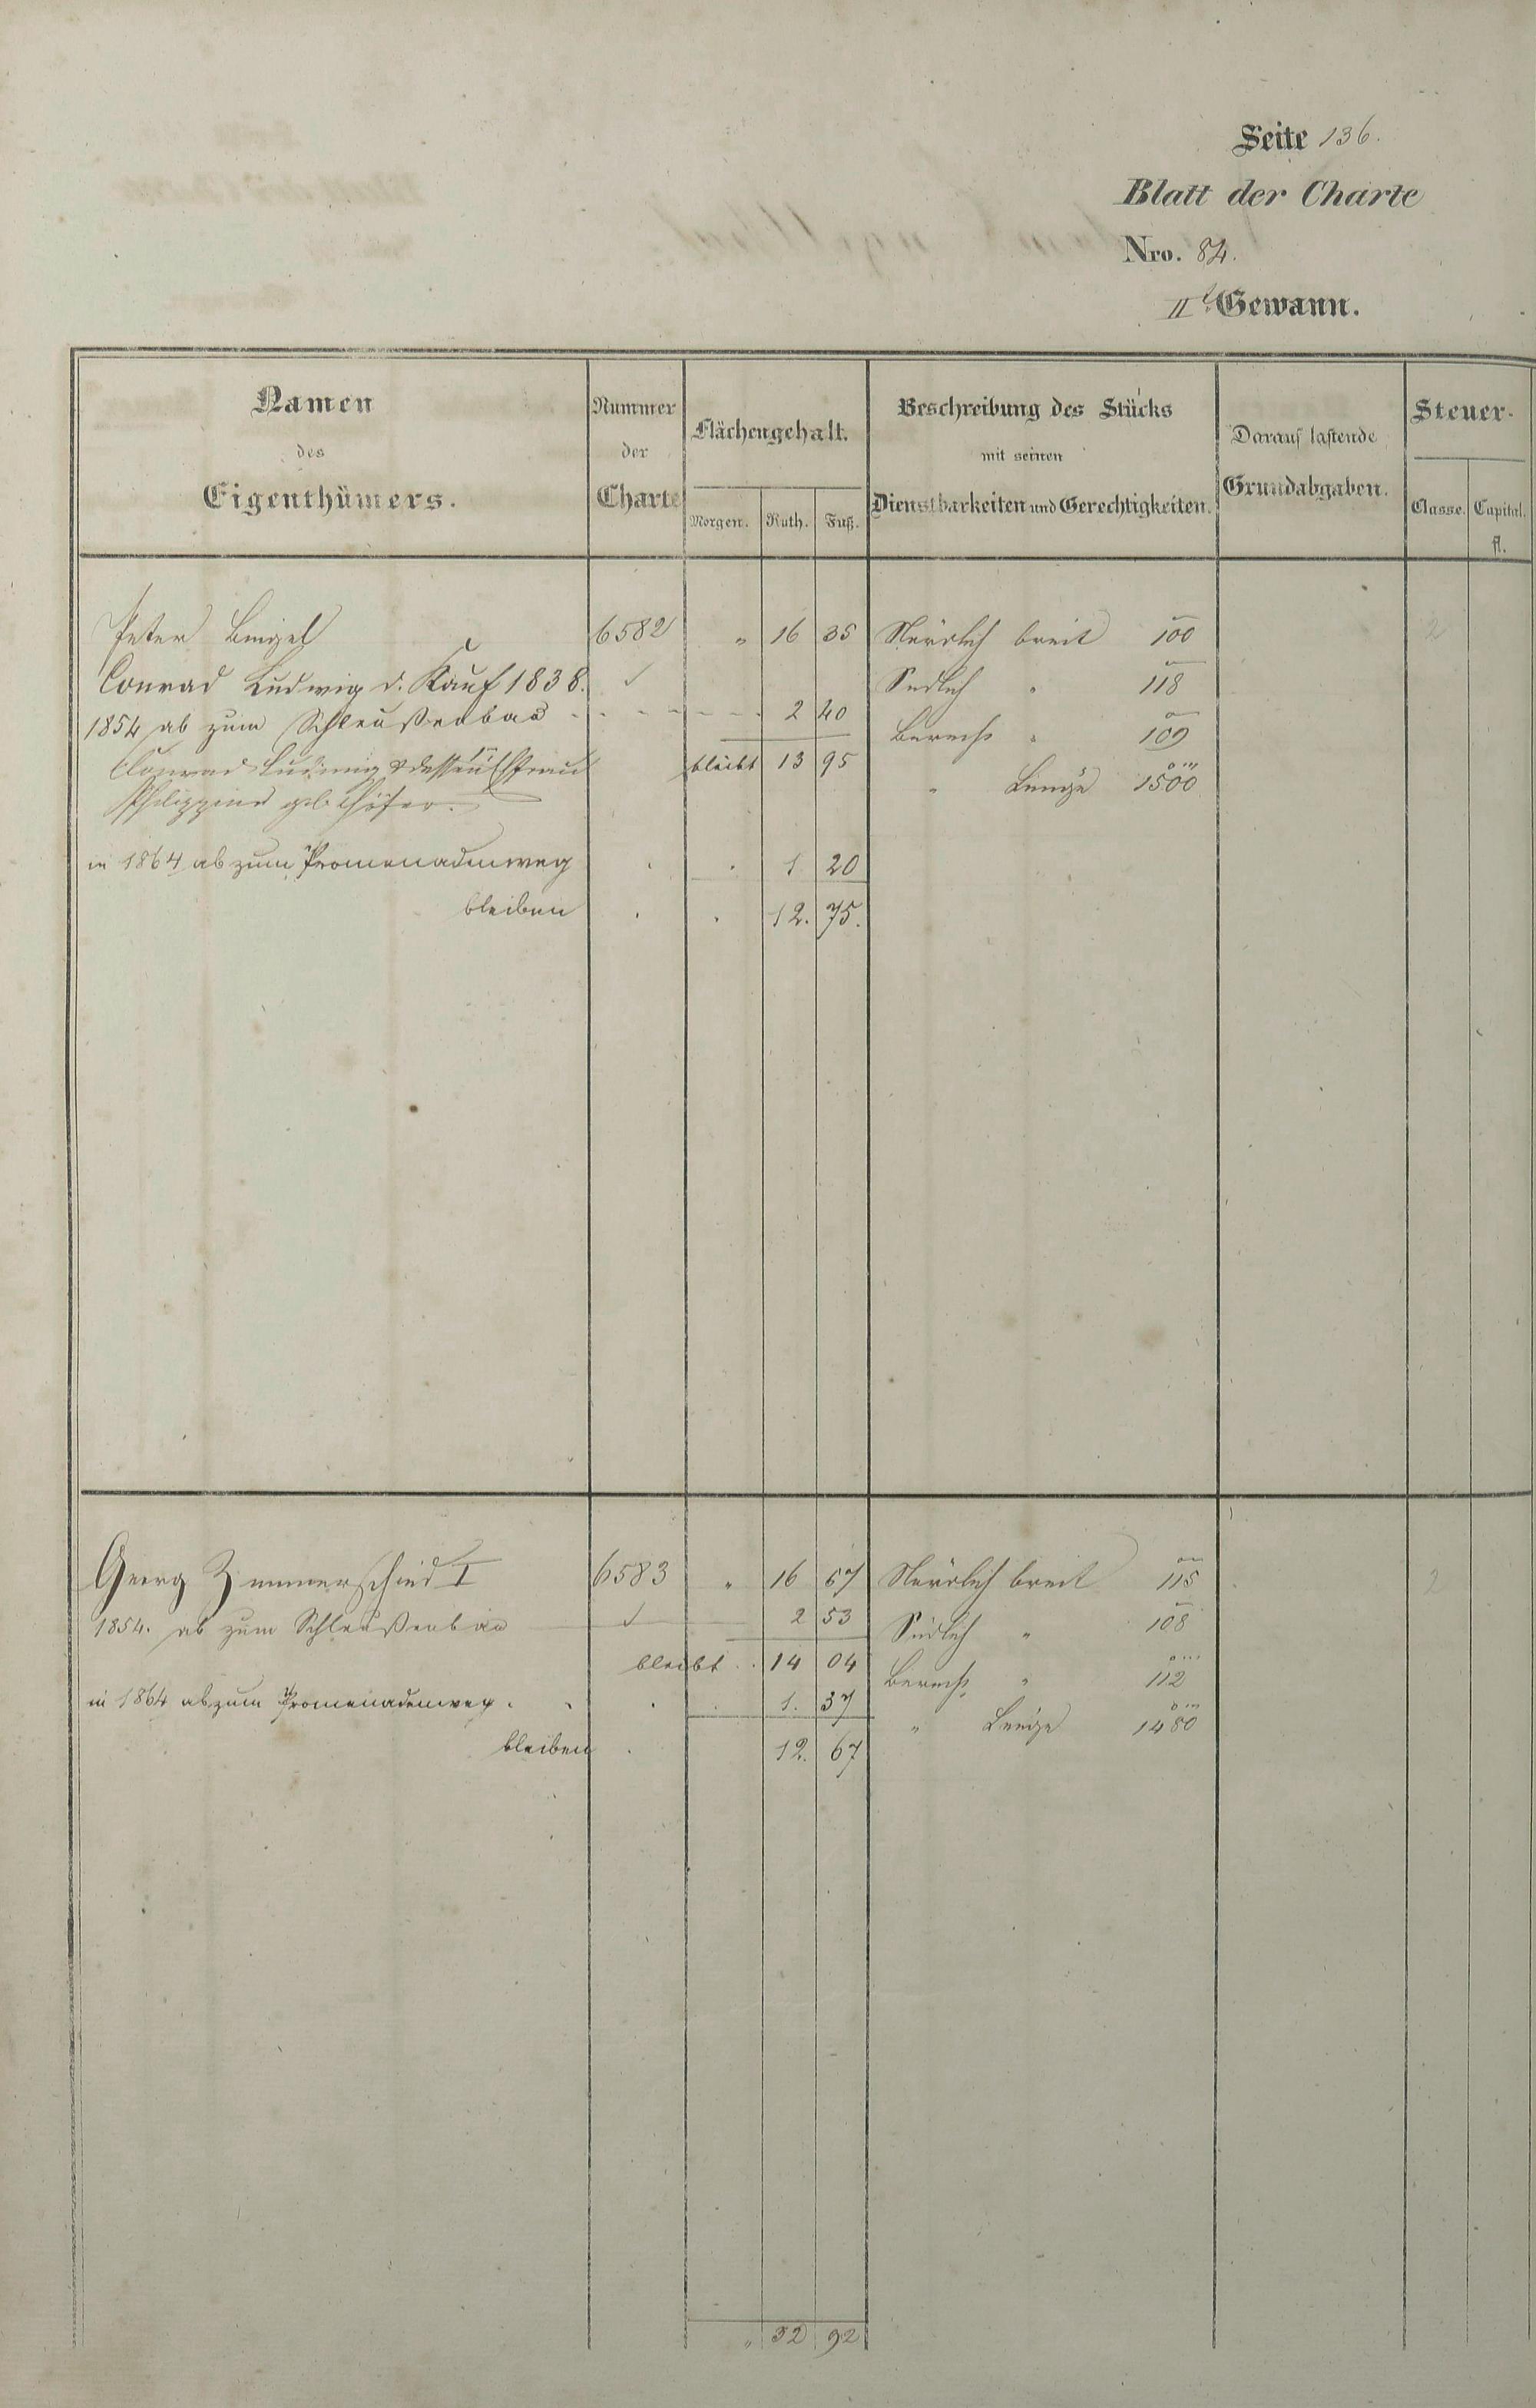 Seite 136.
Blatt der Charte
Nro. 84.
IIt Gewann.
Namen des Eigenthümers.
Nummer der Charte
Flächengehalt.
Morgen. Ruth. Fuß.
Beschreibung des Stücks mit seinen Dienstbarkeiten und Gerechtigkeiten.
Darauf lastende Grundabgaben.
Steuer-
Classe. Capital. fl.
Peter Bingel 6582 " 16 35 Nördlich breit 100
Conrad Ludwig d. Kauf 1838. Südlich " 118
1854 ab zum Schleußenbau - - - - - - 2 40 Berechs " 109
Conrad Ludwig & dessen Ehefrau bleibt 13 95
" Länge 1500
Philippine geb. Höfer.
in 1864 ab zum Promenadenweg 1 20
bleiben 12. 75.
Georg Zimmerschied I 6583 " 16 57 Nördlich breit 115
1854. ab zum Schleußenbau 2 53 Südlich " 108
bleibt . . 14 04 Berechs " 112
in 1864 ab zum Promenadenweg . 1. 37
" Länge 1480
bleiben 12. 67
" 32 92